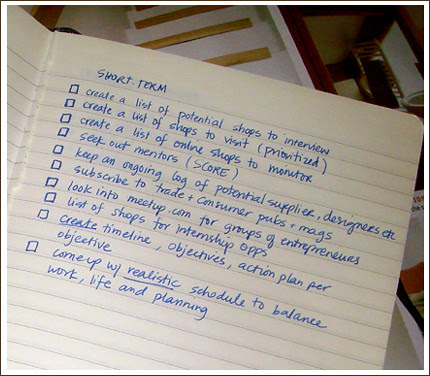 SHORT TERM
☐ create a list of potential shops to interview
☐ create a list of shops to visit (prioritized)
☐ create a list of online shops to monitor
☐ seek out mentors (SCORE)
☐ keep an ongoing log of potential supplier, designers etc
☐ subscribe to trade + consumer pubs + mags
☐ look into meetup.com for groups of entrepreneurs
☐ list of shops for internship opps
☐ create timeline, objectives, action plan per
objective
☐ come up w/ realistic schedule to balance
work, life and planning